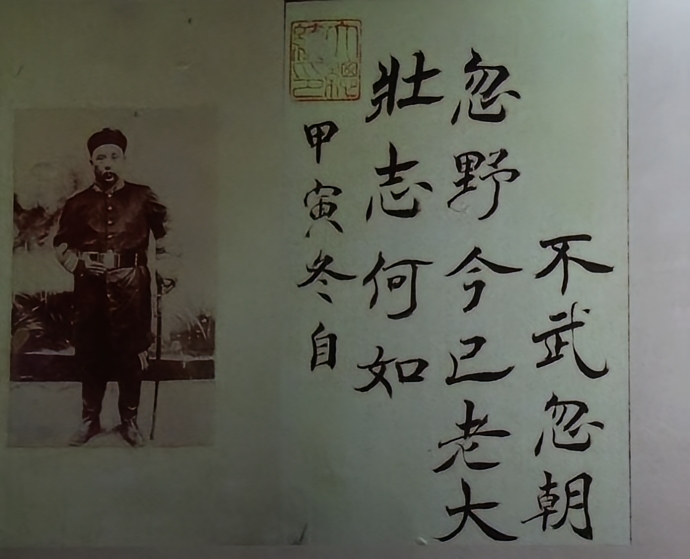 不武忽朝
忽野今已老大
壯志何如
甲寅冬自